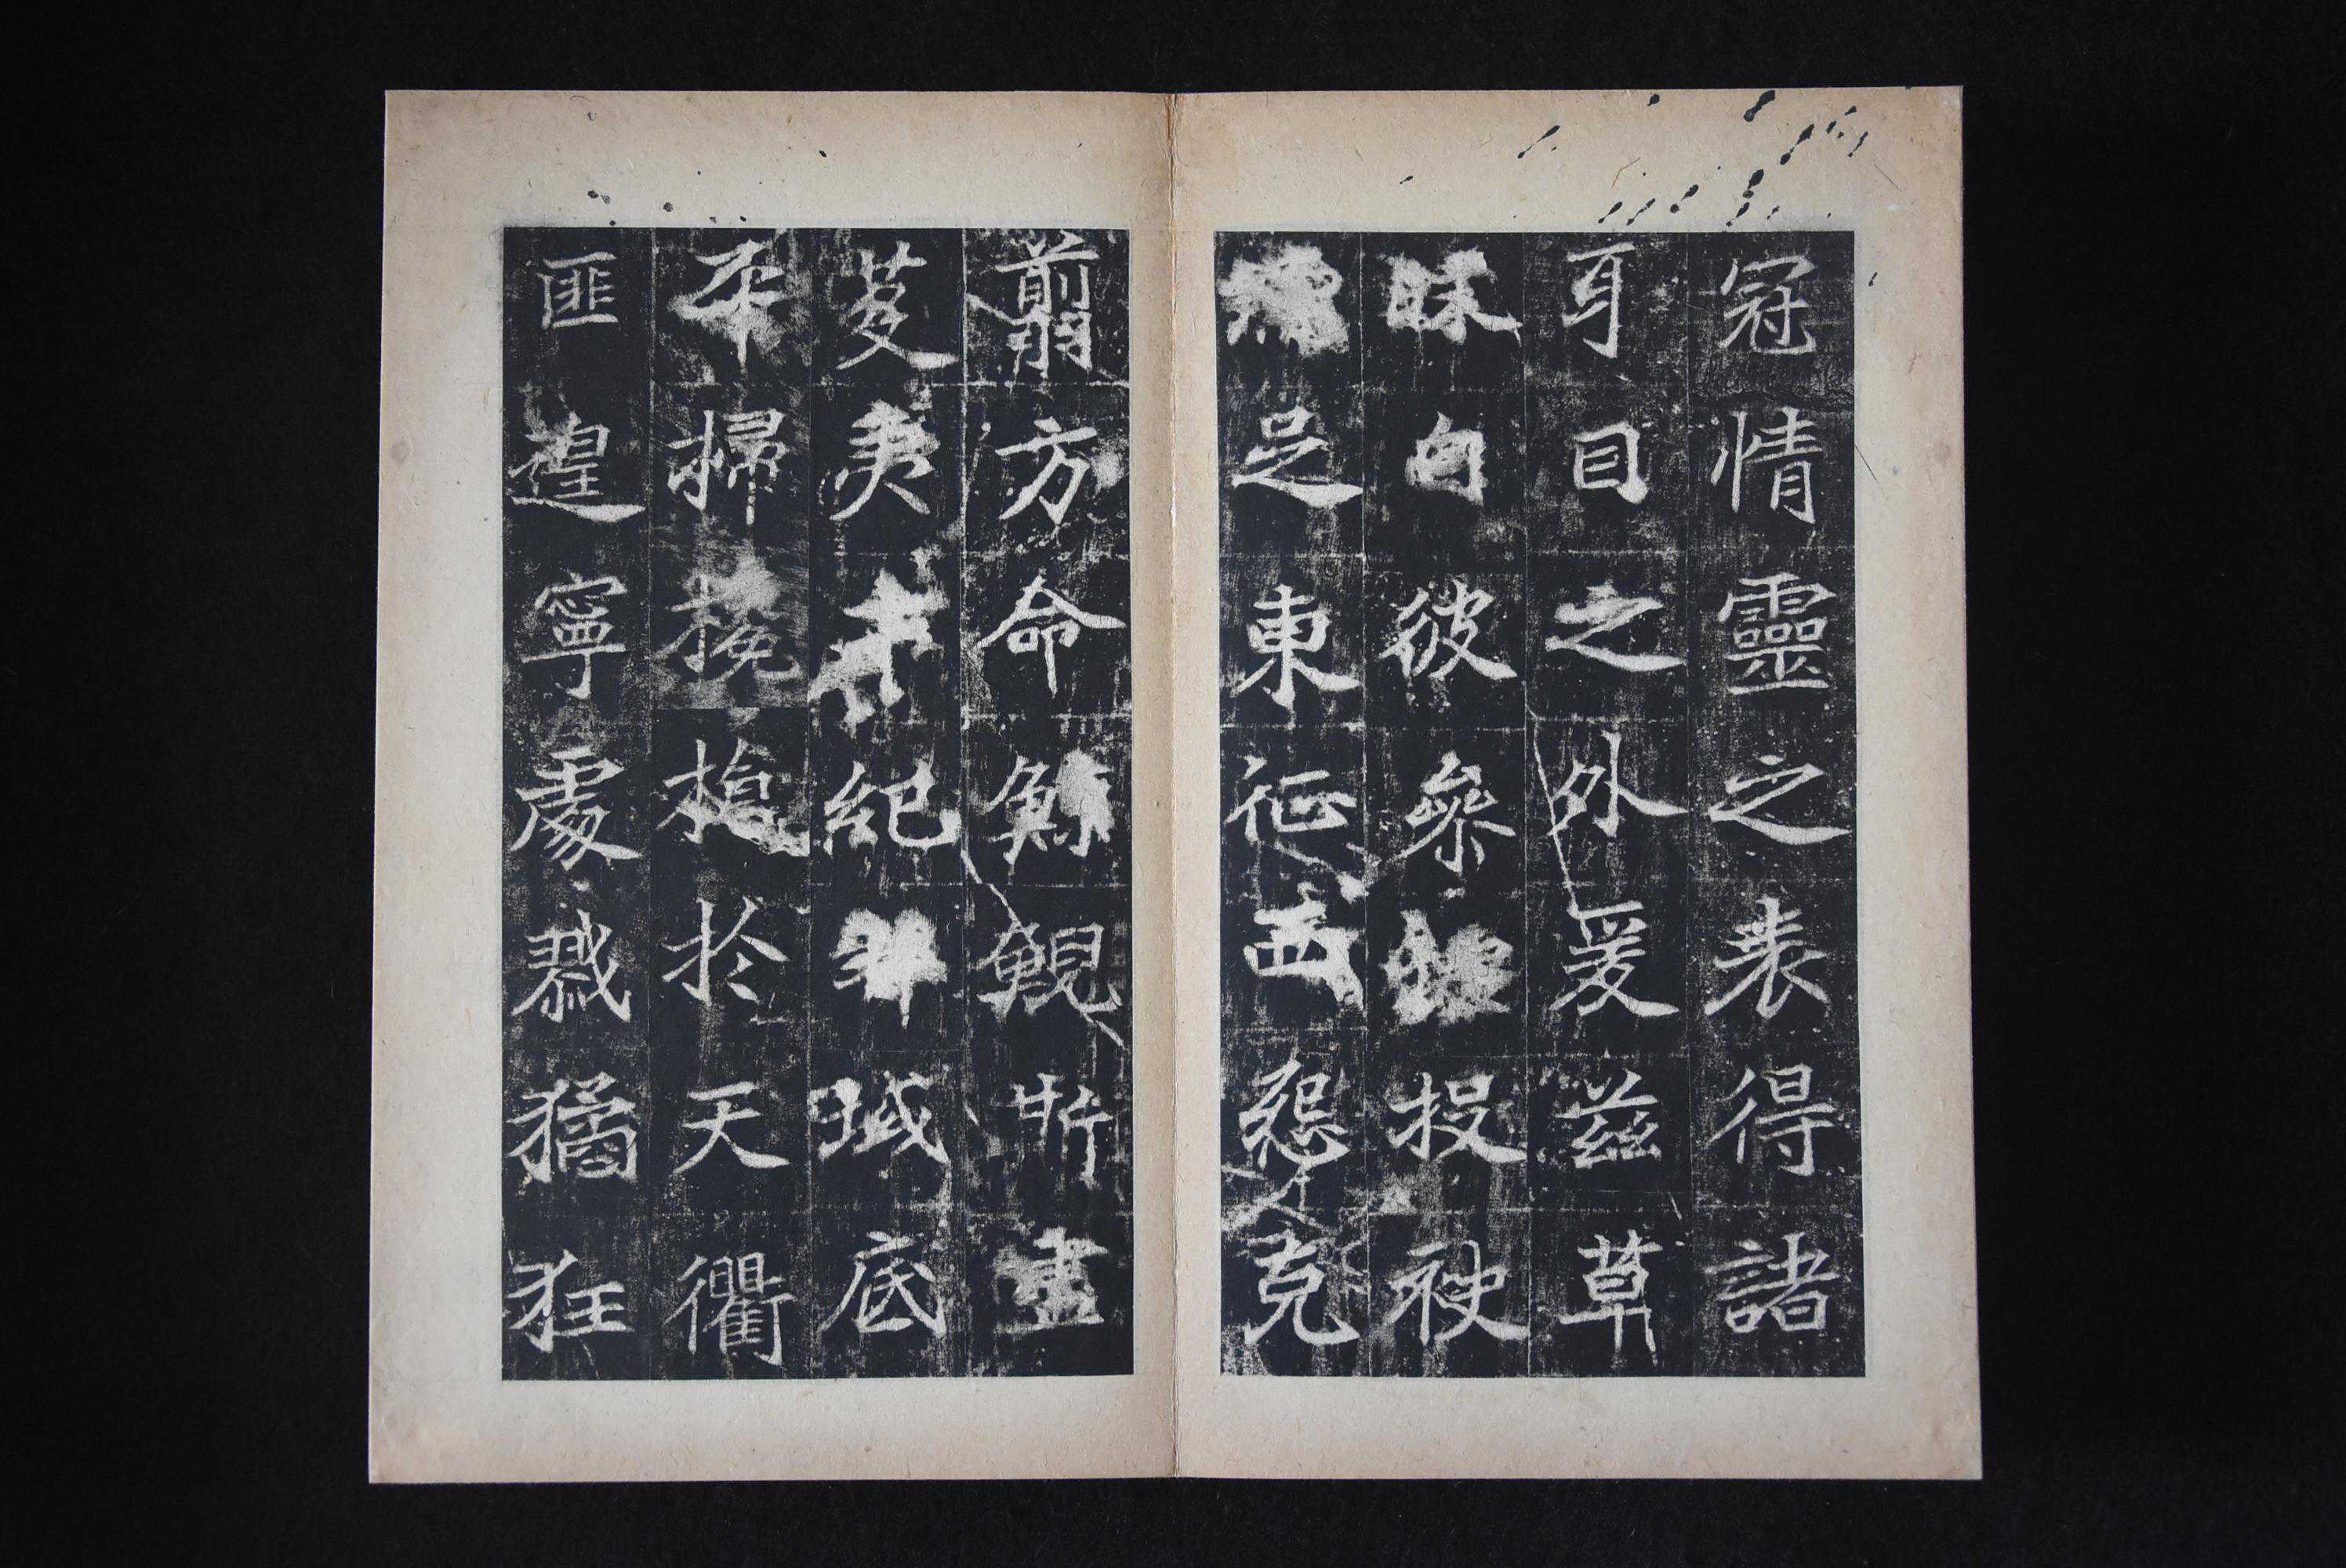 冠情靈之表得諸
耳目之外爰茲草
昧自彼參墟投袂
濡足東征西怨克
翦方命鯨鯢斯盡
芟夷紀邦域底
平掃攙搶於天衢
匪遑寧處戮獝狂